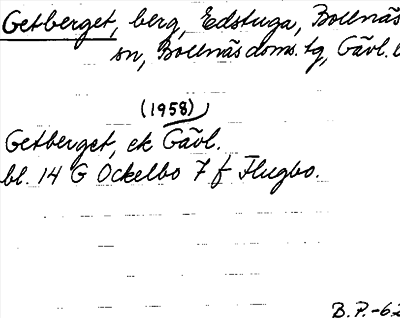 Getberget, berg, Edstuga, Bollnäs
sn, Bollnäs doms. tg, Gävl. l
(1958)
Getberget, ek Gävl.
bl. 14 G Ockelbo 7 f Flugbo.
B.P.-62